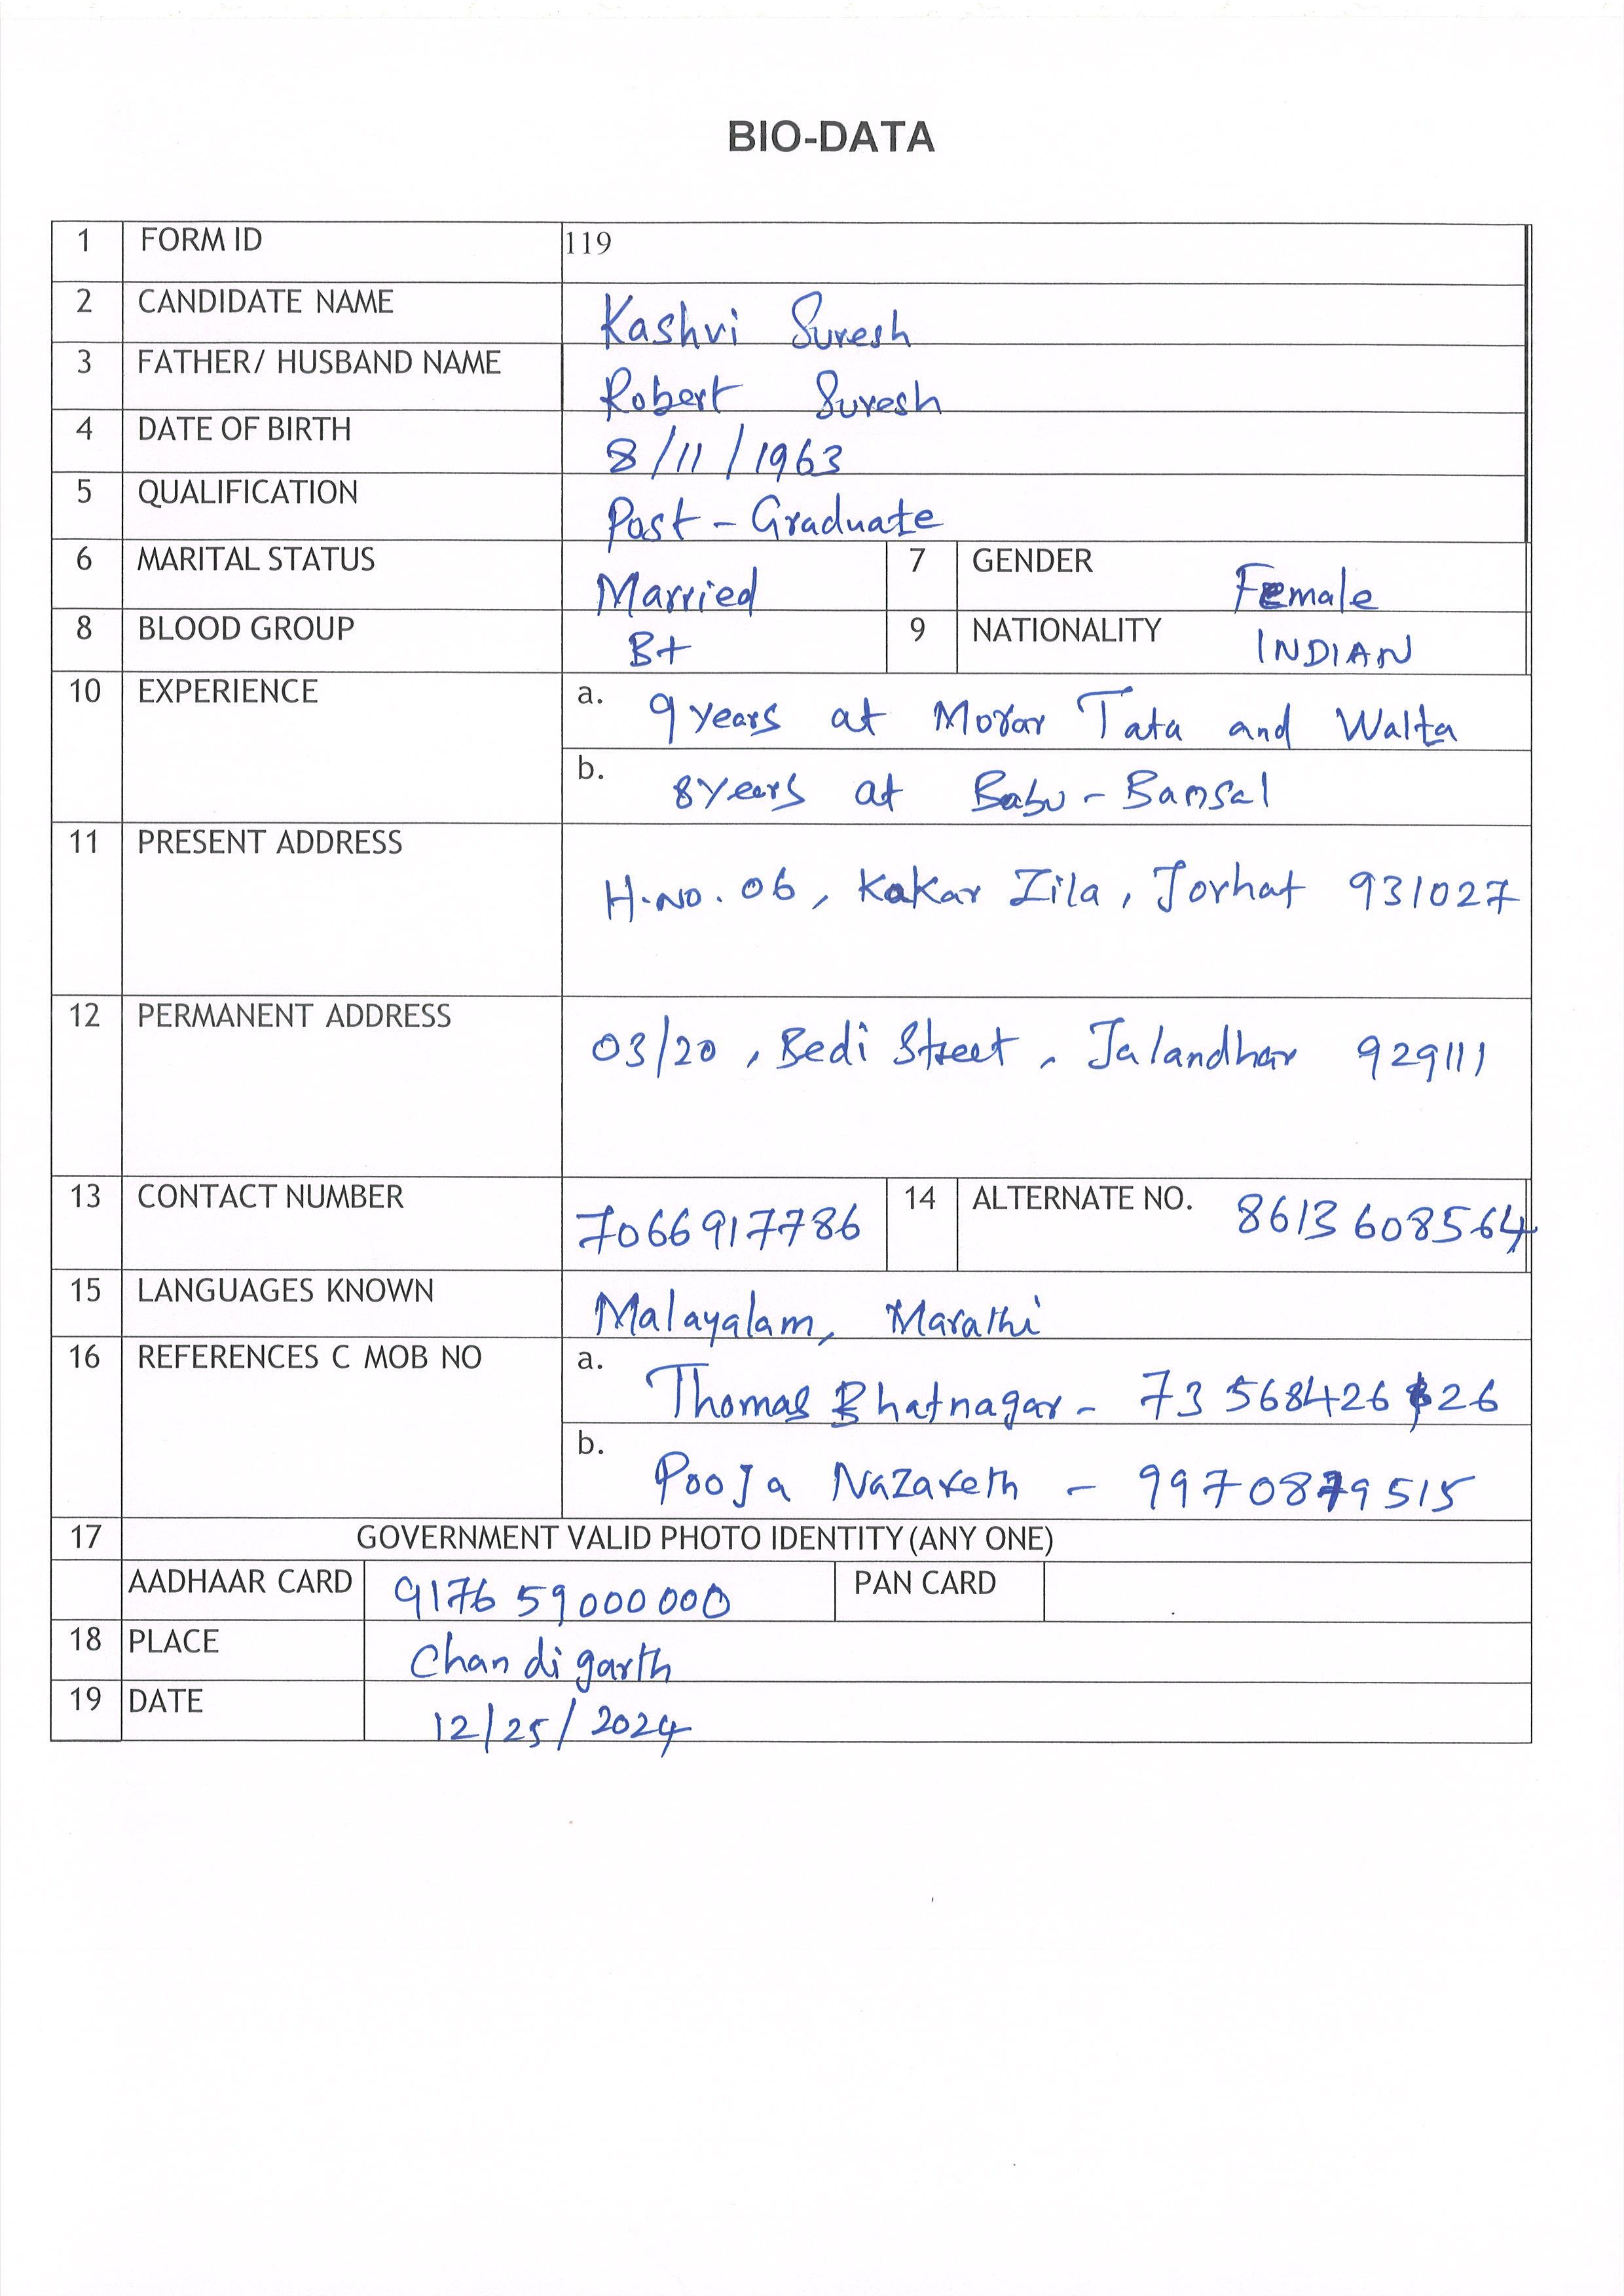 BIO-DATA
1 FORM ID 119
2 CANDIDATE NAME Kashvi Suresh
3 FATHER/ HUSBAND NAME Robert Suresh
4 DATE OF BIRTH 8/11/1963
5 QUALIFICATION Post-Graduate
6 MARITAL STATUS Married 7 GENDER Female
8 BLOOD GROUP B+ 9 NATIONALITY INDIAN
10 EXPERIENCE a. 9 years at Morar Tata and Walta
b. 8 Years at Babu-Bansal
11 PRESENT ADDRESS H.NO. 06, Kakar Zila, Jorhat 931027
12 PERMANENT ADDRESS 03/20, Bedi Street, Jalandhar 929111
13 CONTACT NUMBER 7066917786 14 ALTERNATE NO. 8613608564
15 LANGUAGES KNOWN Malayalam, Marathi
16 REFERENCES C MOB NO a. Thomas Bhatnagar -
b. Pooja Nazareth -
17 GOVERNMENT VALID PHOTO IDENTITY (ANY ONE)
AADHAAR CARD 9176 59000000 PAN CARD
18 PLACE Chandigarth
19 DATE 12/25/2024